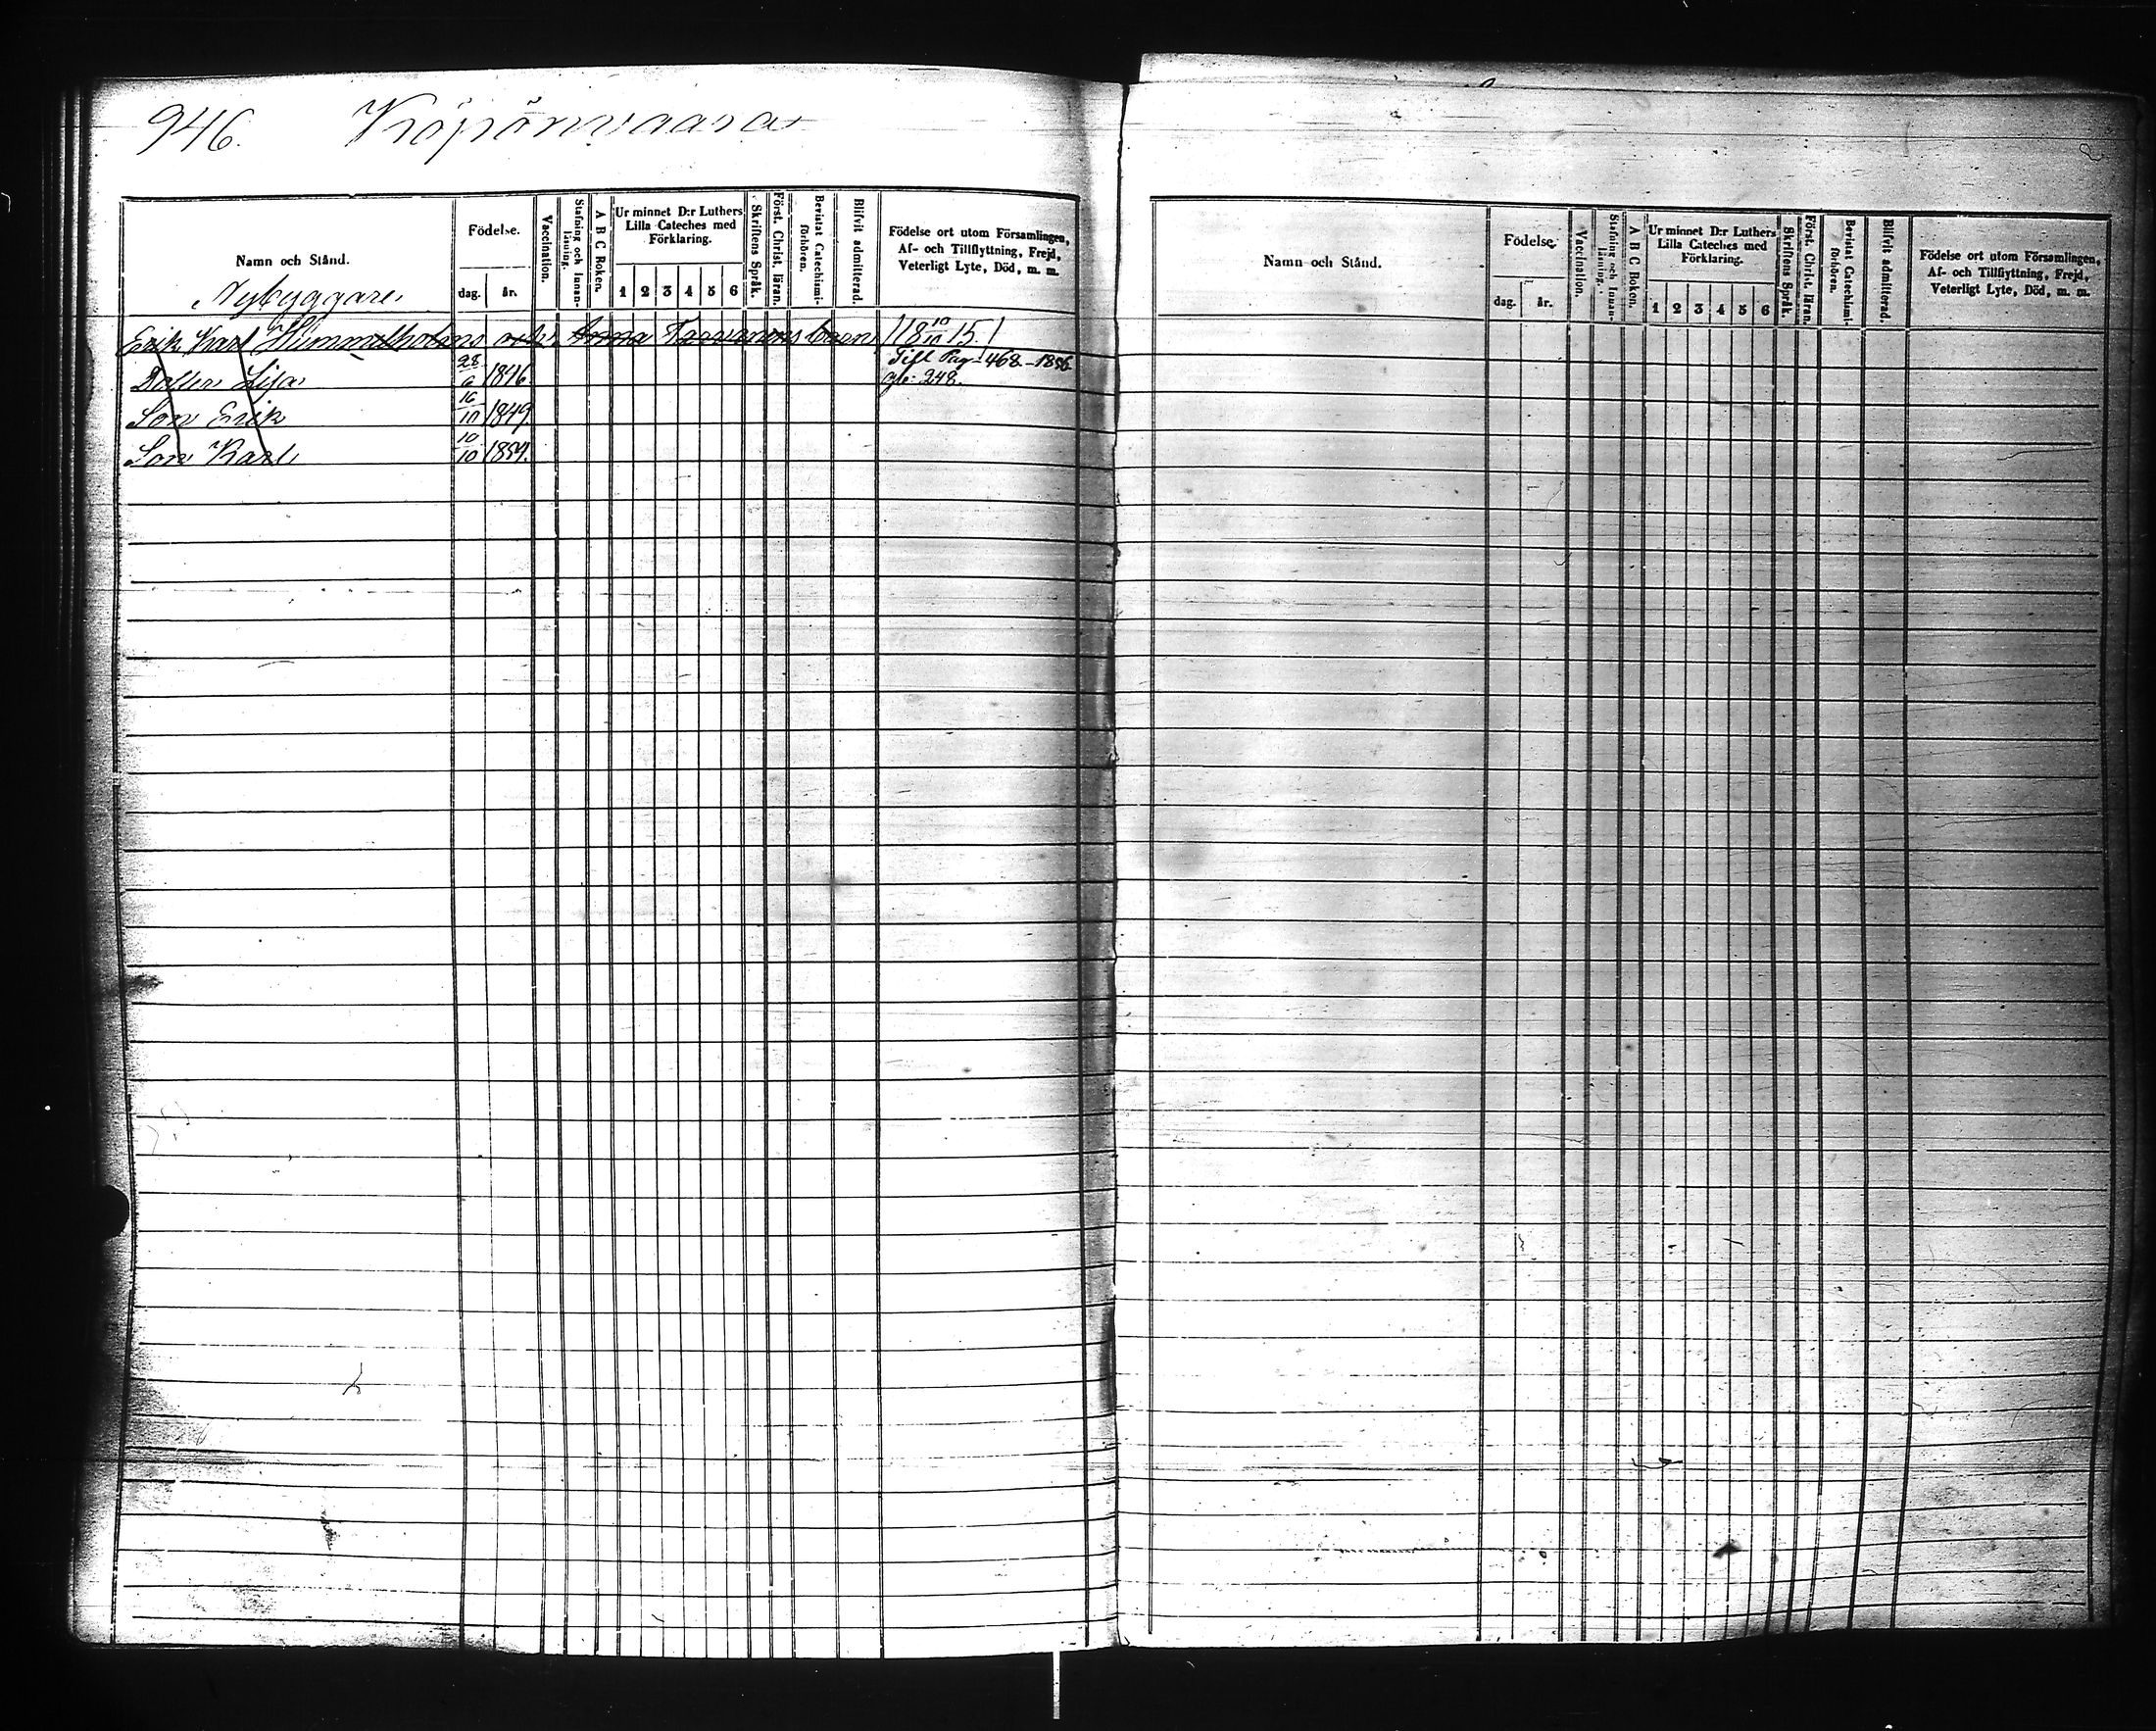 946. Köpönvaara
Namn och Stånd.
Födelse.
dag. år.
Vaccination.
Stafning och Innan-läsning.
A B C Boken.
Ur minnet D:r Luthers Lilla Cateches med Förklaring.
1 2 3 4 5 6
Skriftens Språk.
Först. Christ. läran.
Bevistat Catechismi-förhören.
Blifvit admitterad.
Födelse ort utom Församlingen,
Af- och Tillflyttning, Frejd,
Veterligt Lyte, Död, m. m.
Nybyggare
Erik Karl Himmelholms och Anna Tarvainens barn 18 10/10 15
Dotter Lisa 28/6 1846. Till Pag 468 - 1856
gb: 248.
Son Erik 16/10 1849.
Son Karl 10/10 1854.
Namn och Stånd.
Födelse.
dag. år.
Vaccination.
Stafning och Innan-läsning.
A B C Boken.
Ur minnet D:r Luthers Lilla Cateches med Förklaring.
1 2 3 4 5 6
Skriftens Språk.
Först. Christ. läran.
Bevistat Catechismi-förhören.
Blifvit admitterad.
Födelse ort utom Församlingen,
Af- och Tillflyttning, Frejd,
Veterligt Lyte, Död, m. m.